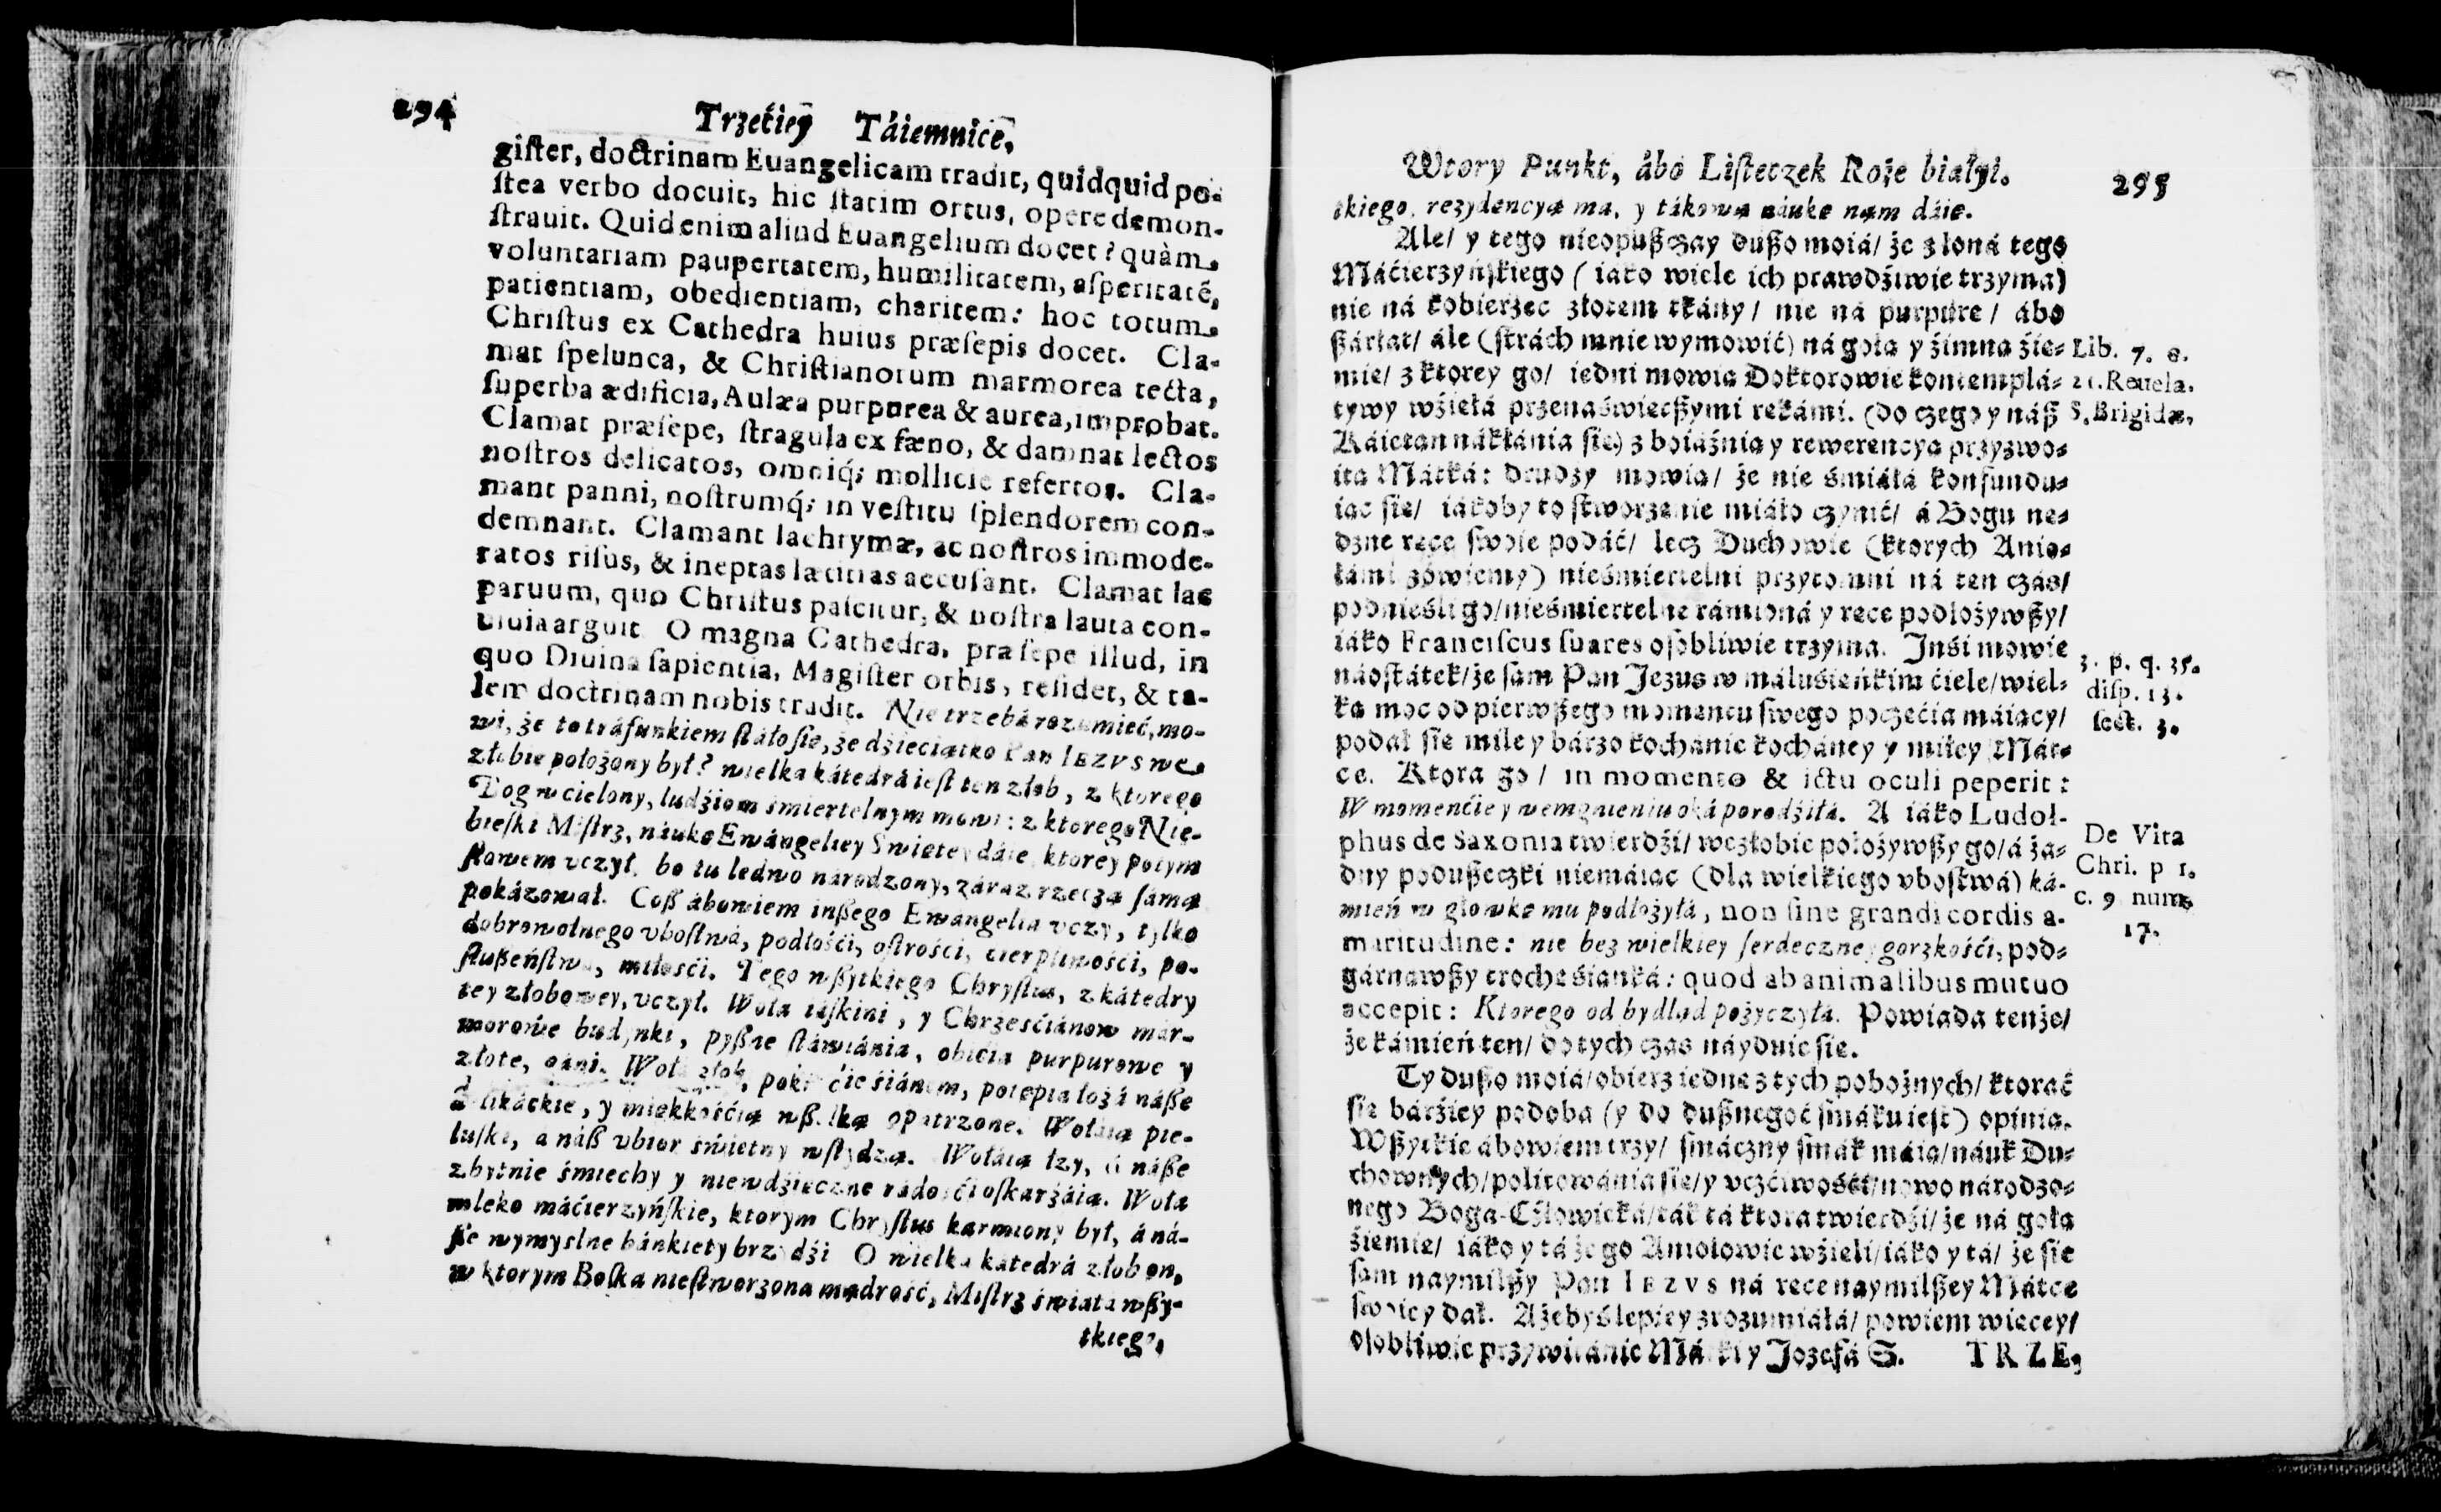 294
Trzećiey Táiemnice,
giſter, doctrinam Euangelicam tradit, quidquid po-
ſtea verbo docuit, hic ſtatim ortus, opere demon-
ſtrauit. Quid enim aliud Euangelium docet? quàm
voluntariam paupertatem, humilitatem, aſperitatē,
patientiam, obedientiam, charitem: hoc totum
Chriſtus ex Cathedra huius præſepis docet. Cla-
mat ſpelunca, & Chriſtianorum marmorea tecta,
ſuperba ædificia, Aulæa purpurea & aurea, improbat.
Clamat præſepe, ſtragula ex fæno, & damnat lectos
noſtros delicatos, omniq́; mollicie refertos. Cla-
mant panni, noſtrumq́; in veſtitu ſplendorem con-
demnant. Clamant lachrymæ, ac noſtros immode-
ratos riſus, & ineptas lætitias accuſant. Clamat lac
paruum, quo Chriſtus paſcitur, & noſtra lauta con-
uiuia arguit. O magna Cathedra, præſepe illud, in
quo Diuina ſapientia, Magiſter orbis, reſidet, & ta-
lem doctrinam nobis tradit. Nie trzebá rozumieć, mo-
wi, że to tráfunkiem ſtáło ſię, że dźieciątko Pan IEZVS we
złobie położony był? wielka kátedrá ieſt ten złob, z ktorego
Bog wcielony, ludźiom śmiertelnym mowi: z ktorego Nie-
bieſki Miſtrz, náukę Ewángeliey Swiętey dáie, ktorey potym
ſłowem vczył, bo tu ledwo národzony, záraz rzeczą ſámą
pokázował. Coß ábowiem inßego Ewángelia vczy, tylko
dobrowolnego vboſtwá, podłośći, oſtrośći, ćierpliwośći, po-
ſłußeńſtwa, miłośći. Tego wßytkiego Chryſtus, z kátedry
tey złobowey, vczył. Woła iáſkini, y Chrześćiánow már-
morowe budynki, pyßne ſtáwiánia, obićia purpurowe y
złote, gáni. Woła złob, pokryćie śiánem, potępia łożá náße
delikáckie, y miękkośćią wßelką opátrzone. Wołáią pie-
luſki, a náß vbior świetny wſtydzą. Wołáią łzy, á náße
zbytnie śmiechy y niewdźięczne rádośći oſkarżáią. Woła
mleko máćierzyńſkie, ktorym Chryſtus karmiony był, á ná-
ße wymyslne bánkiety brzydźi. O wielka kátedrá złob on,
w ktorym Boſka nieſtworzona mądrość, Miſtrz świátá wßy-
tkiego,
Wtory Punkt, ábo Liſteczek Roże białyi.
295
tkiego, rezydencyą ma, y tákową náukę nam dáie.
Ale/ y tego nieopußczay dußo moiá/ że z łoná tego
Máćierzyńſkiego (iáko wiele ich prawdźiwie trzyma)
nie ná kobierzec złotem tkány/ nie ná purpurę/ ábo
ßárłat/ ále (ſtrách mnie wymowić) ná gołą y źimną źie-
mię/ z ktorey go/ iedni mowią Doktorowie kontemplá-
tywy wźięłá przenaświętßymi rękámi. (do czego y náß
Káietan nákłánia ſię) z boiáźnią y rewerencyą przyzwo-
itą Mátká: drudzy mowią/ że nie śmiáłá konfundu-
iąc ſię/ iákoby to ſtworzenie miáło czynić/ á Bogu nę-
dzne ręce ſwoie podáć/ lecz Duchowie (ktorych Anio-
łámi zowiemy) nieśmiertelni przytomni ná ten czás/
podnieśli go/ nieśmiertelne rámioná y ręce podłożywßy/
iáko Franciſcus ſuares oſobliwie trzyma. Inśi mowię
náoſtátek/ że ſam Pan Jezus w máluśieńkim ćiele/ wiel-
ką moc od pierwßego momentu ſwego poczęćia máiący/
podał ſię miley bárzo kochánie kocháney y miłey Mát-
ce. Ktora go/ in momento & ictu oculi peperit:
W momenćie y wemgnieniu oká porodźiłá. A iáko Ludol-
phus de Saxonia twierdźi/ wezłobie położywßy go/ á ża-
dny podußeczki niemáiąc (dla wielkiego vboſtwá) ká-
mień w głowkę mu podłożyłá, non ſine grandi cordis a-
maritudine: nie bez wielkiey ſerdeczney gorzkośći, pod-
gárnąwßy trochę śianká: quod ab animalibus mutuo
accepit: Ktorego od bydląd pożyczyłá. Powiáda tenże/
że kámień ten/ do tych czas náyduie ſię.
Ty dußo moiá/ obierz iednę z tych pobożnych/ ktorać
ſię bárźiey podoba (y do dußnegoć ſmáku ieſt) opinią.
Wßytkie ábowiem trzy/ ſmáczny ſmák máią/ náuk Du-
chownych/ politowánia ſię/ y vczćiwośći/ nowo národzo-
nego Boga-Człowieká/ ták tá ktora twierdźi/ że ná gołą
źiemię/ iáko y tá że go Aniołowie wźięli/ iáko y tá/ że ſię
ſam naymilßy Pan IEZVS ná ręce naymilßey Mátce
ſwoiey dał. Ażebyś lepiey zrozumiáłá/ powiem więcey/
oſobliwie przywitánie Mátki y Jozefá S. TRZE-
Lib. 7. c.
21. Reuela.
S. Brigidæ,
3. p. q. 35.
diſp. 13.
ſect. 3.
De Vita
Chri. p 1.
c. 9 num
17.